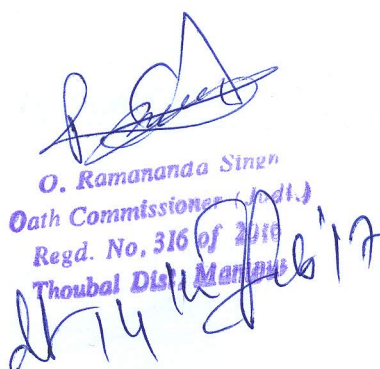 O. Ramananda Singh
Oath Commissioner (Judl.)
Regd. No, 316 of 2010
Thoubal Dist. Manipur
14 Feb '17